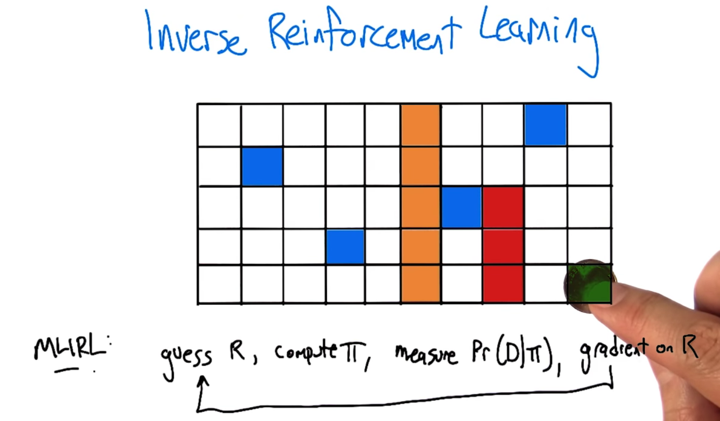 Inverse Reinforcement Learning
MLIRL: guess R, compute π, measure Pr(D|π), gradient on R